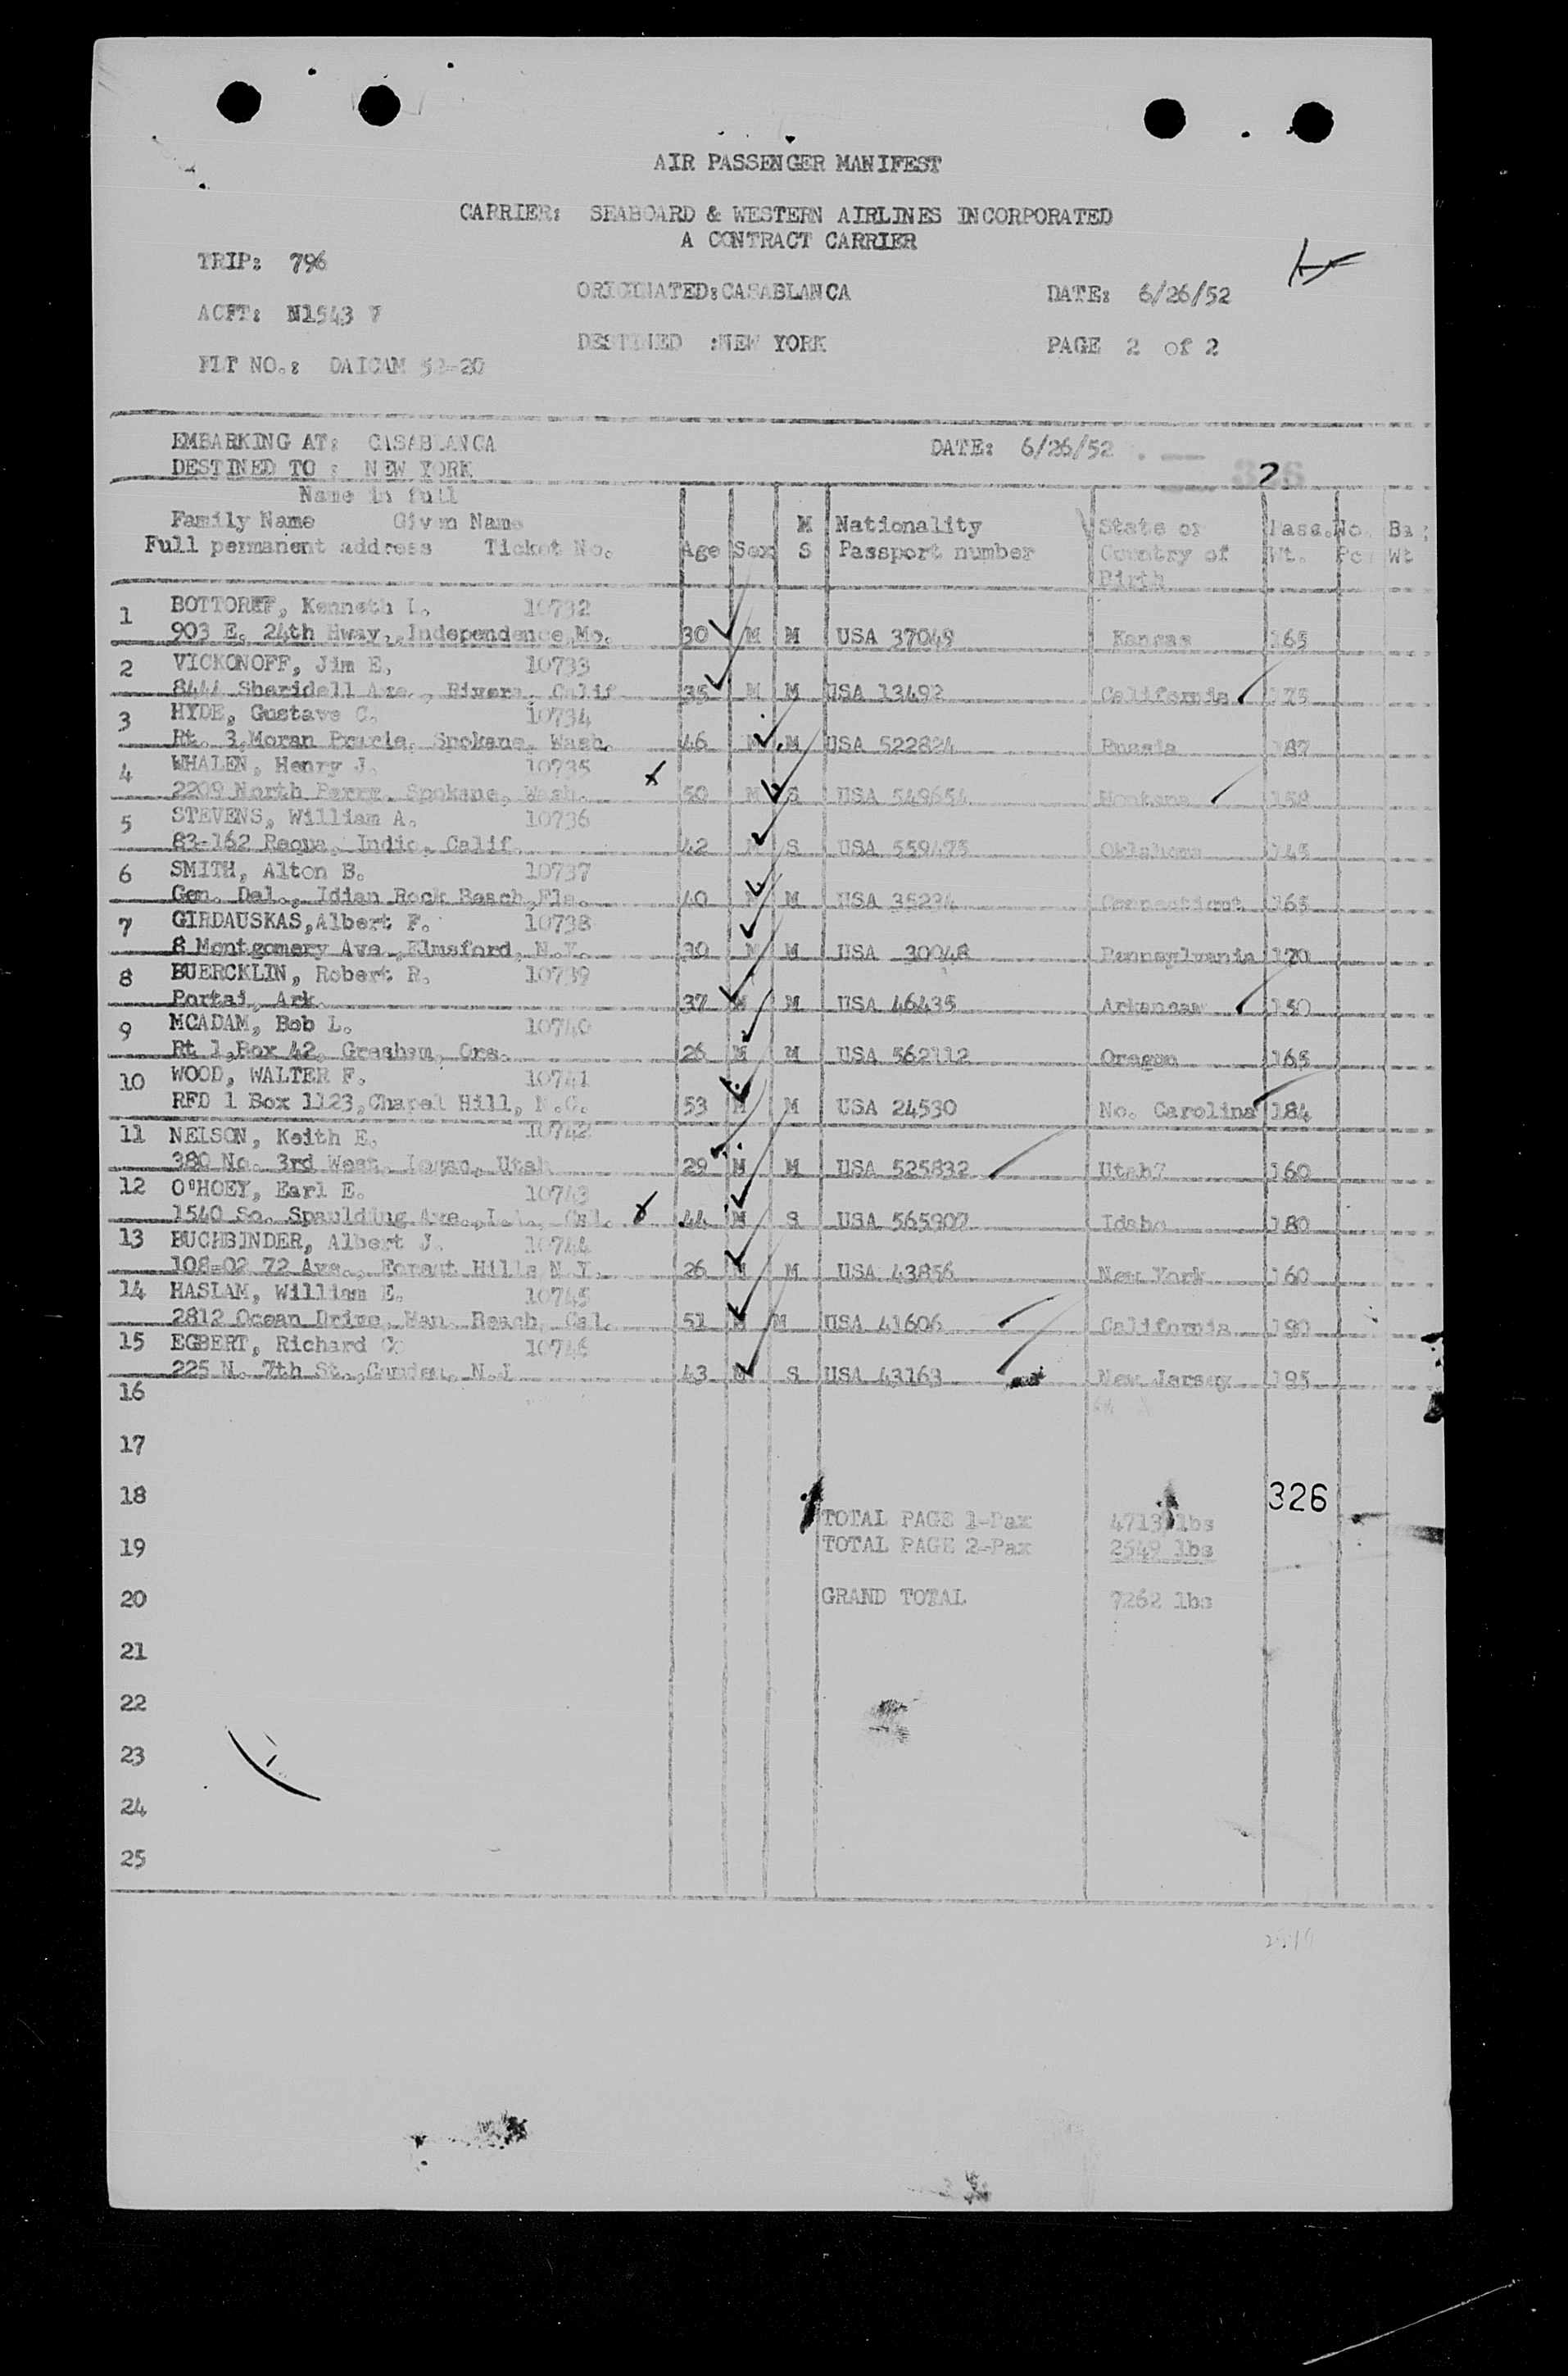 AIR PASSENGER MANIFEST
CARRIER: SEABOARD & WESTERN AIRLINES INCORPORATED
A CONTRACT CARRIER
TRIP: 796
ORIGINATED:CASABLANCA DATE: 6/26/52
ACFT: N1543 V
DESTINED :NEW YORK PAGE 2 of 2
FLT NO.: DAICAM 52-20
EMBARKING AT: CASABLANCA DATE: 6/26/52
DESTINED TO : NEW YORK 2
Name in full
Family Name Given Name M Nationality State or Pass. No. Ba
Full permanent address Ticket No. Age Sex S Passport number Country of Wt. Pc Wt
Birth
1 BOTTORFF, Kenneth L. 10732
903 E. 24th Hway., Independence,Mo. 30 M M USA 37049 Kansas 165
2 VICKONOFF, Jim E. 10733
8444 Sheridell Ave., Rivera, Calif 35 M M USA 13492 California 175
3 HYDE, Gustave C. 10734
Rt. 3,Moran Prarie, Spokane, Wash. 46 M M USA 522824 Russia 187
4 WHALEN, Henry J. 10735
2209 North Perry, Spokane, Wash. 50 M S USA 549654 Montana 158
5 STEVENS, William A. 10736
83-162 Requa, Indio, Calif. 42 M S USA 559475 Oklahoma 145
6 SMITH, Alton B. 10737
Gen. Del., Idian Rock Beach,Fla. 40 M M USA 35294 Connecticut 165
7 GIRDAUSKAS,Albert F. 10738
8 Montgomery Ave.,Elmsford, N.Y. 30 M M USA 30048 Pennsylvania 170
8 BUERCKLIN, Robert R. 10739
Portai, Ark. 37 M M USA 46435 Arkansas 150
9 MCADAM, Bob L. 10740
Rt 1,Box 42, Gresham, Ore. 26 M M USA 562112 Oregon 165
10 WOOD, WALTER F. 10741
RFD 1 Box 1123,Chapel Hill, N.C. 53 M M USA 24530 No. Carolina 184
11 NELSON, Keith E. 10742
380 No. 3rd West, Logan, Utah 29 M M USA 525832 Utah7 160
12 O'HOEY, Earl E. 10743
1540 So. Spaulding Ave.,L.A., Cal. 44 M S USA 565907 Idaho 180
13 BUCHBINDER, Albert J. 10744
108-02 72 Ave., Forest Hills N.Y. 26 M M USA 43856 New York 160
14 HASLAM, William E. 10745
2812 Ocean Drive, Man. Beach, Cal. 51 M M USA 41606 California 190
15 EGBERT, Richard C 10746
225 N. 7th St.,Camden, N.J 43 M S USA 43163 New Jersey 195
16
17
18 326
TOTAL PAGE 1-Pax 4713 lbs
19 TOTAL PAGE 2-Pax 2549 lbs
20 GRAND TOTAL 7262 lbs
21
22
23
24
25